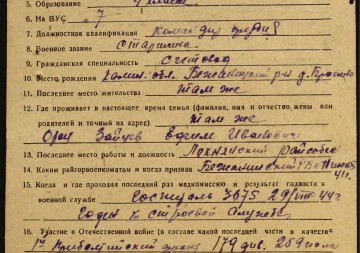 5. Образование
6. На ВУС 7
7. Должностная квалификация командир
8. Военное звание старшина
9. Гражданская специальность счетовод
10. Место рождения Калин. обл. Бежаницкий р-н д.
11. Последнее место жительства там же
12. Где проживает в настоящее время семья (фамилия, имя и отчество жены или
родителей и точный их адрес) там же
Отец Зайцев Иванович
13. Последнее место работы и должность
14. Каким райгорвоенкоматом и когда призван Бежаницким РВК
41 г.
15. Когда и где проходил последний раз медкомиссию и результат годности к
военной службе госпиталь 3675 29/VIII-44 г.
годен к строевой службе
16. Участие в Отечественной войне (в составе какой последней части в качестве
1й Прибалтийский фронт 179 див. 259 полк